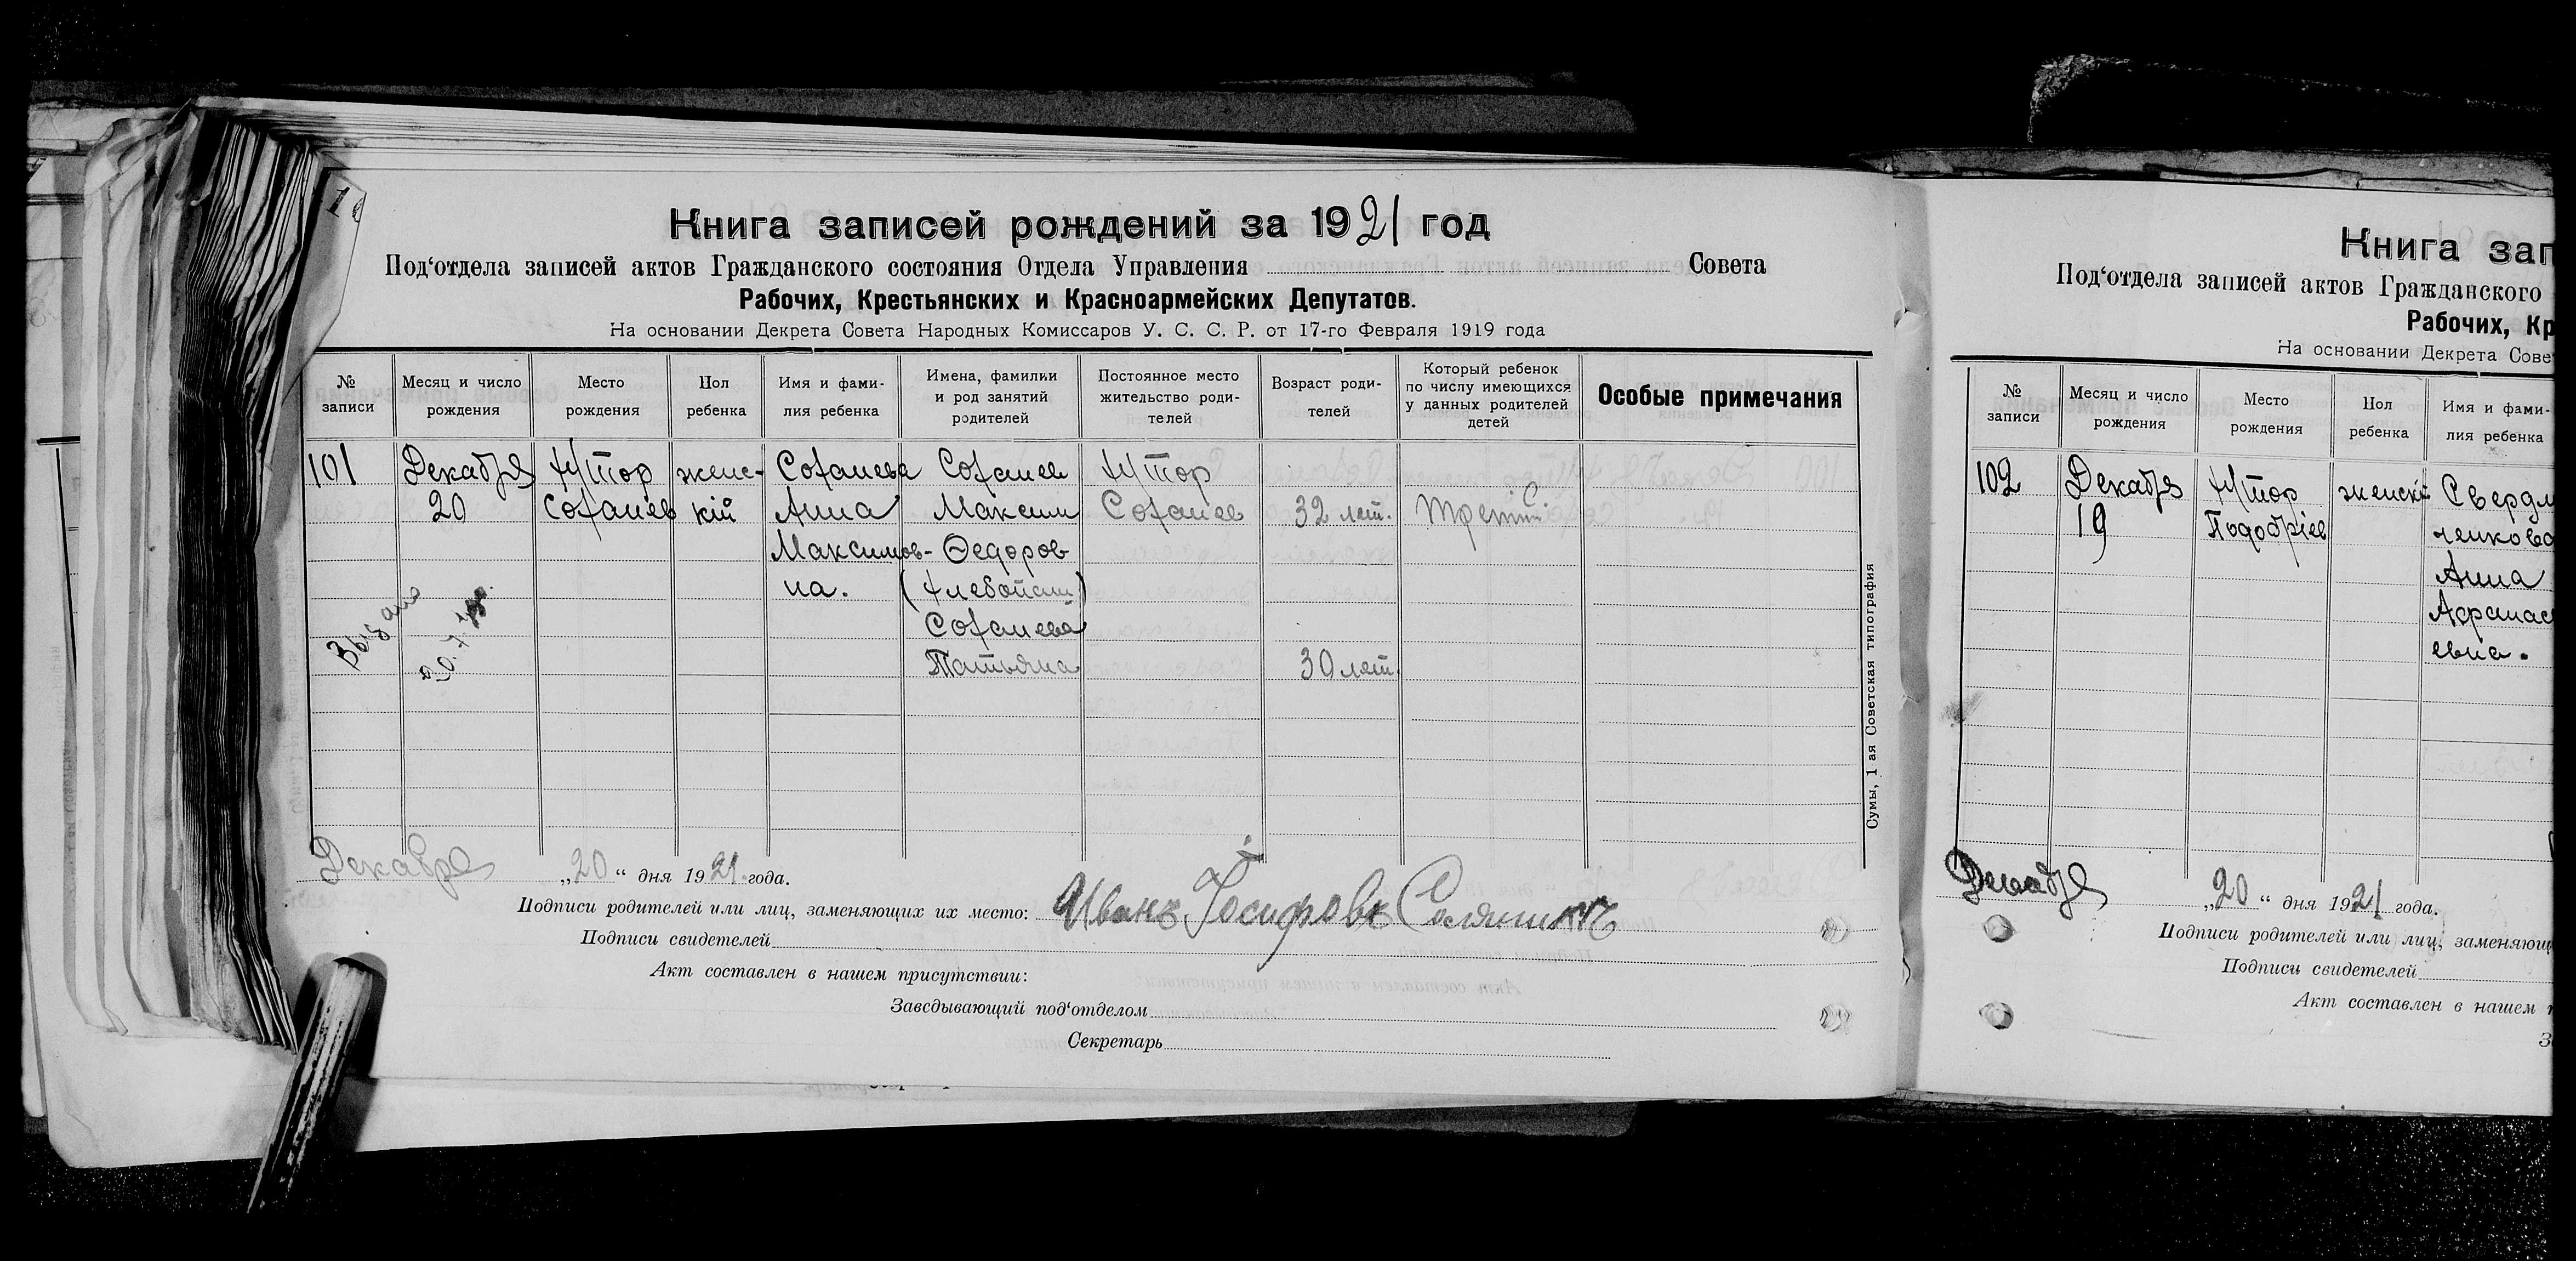 Книга записей рождений за 1921 год
Под‘отдела записей актов Гражданского состояния Отдела Управления Совета
Рабочих, Крестьянских и Красноармейских Депутатов.
На основании Декрета Совета Народных Комиссаров У. С. С. Р. от 17-го Февраля 1919 года
№ записи
Месяц и число рождения
Место рождения
Пол ребенка
Имя и фами-
лия ребенка
Имена, фамилии
и род занятий
родителей
Постоянное место
жительство роди-
телей
Возраст роди-
телей
Который ребенок
по числу имеющихся
у данных родителей
детей
Особые примечания
101
Декабря
20
Хутор
Соханев
женс-
кій
Соханева
Анна
Максимов-
на.
Соханев
Максим
Федоров
(хлебопаш)
Соханева
Татьяна
Хутор
Соханев
32 лет.
30 лет.
Третий
Выдано
Декабря „20“ дня 1921 года.
Подписи родителей или лиц, заменяющих их место: Иванъ Іосифовъ
Подписи свидетелей
Акт составлен в нашем присутствии:
Заведывающий под‘отделом
Секретарь
Сумы, 1 ая Советская типография
Книга зап
Под‘отдела записей актов Гражданского
Рабочих, Кр
На основании Декрета Сове
№ записи
Месяц и число рождения
Место рождения
Пол ребенка
Имя и фами-
лия ребенка
102
Декабря
19
Хутор
женскій
Свердл
ченкова
Анна
Афанас
евна.
Декабря „20“ дня 1921 года.
Подписи родителей или лиц, заменяющ
Подписи свидетелей
Акт составлен в нашем